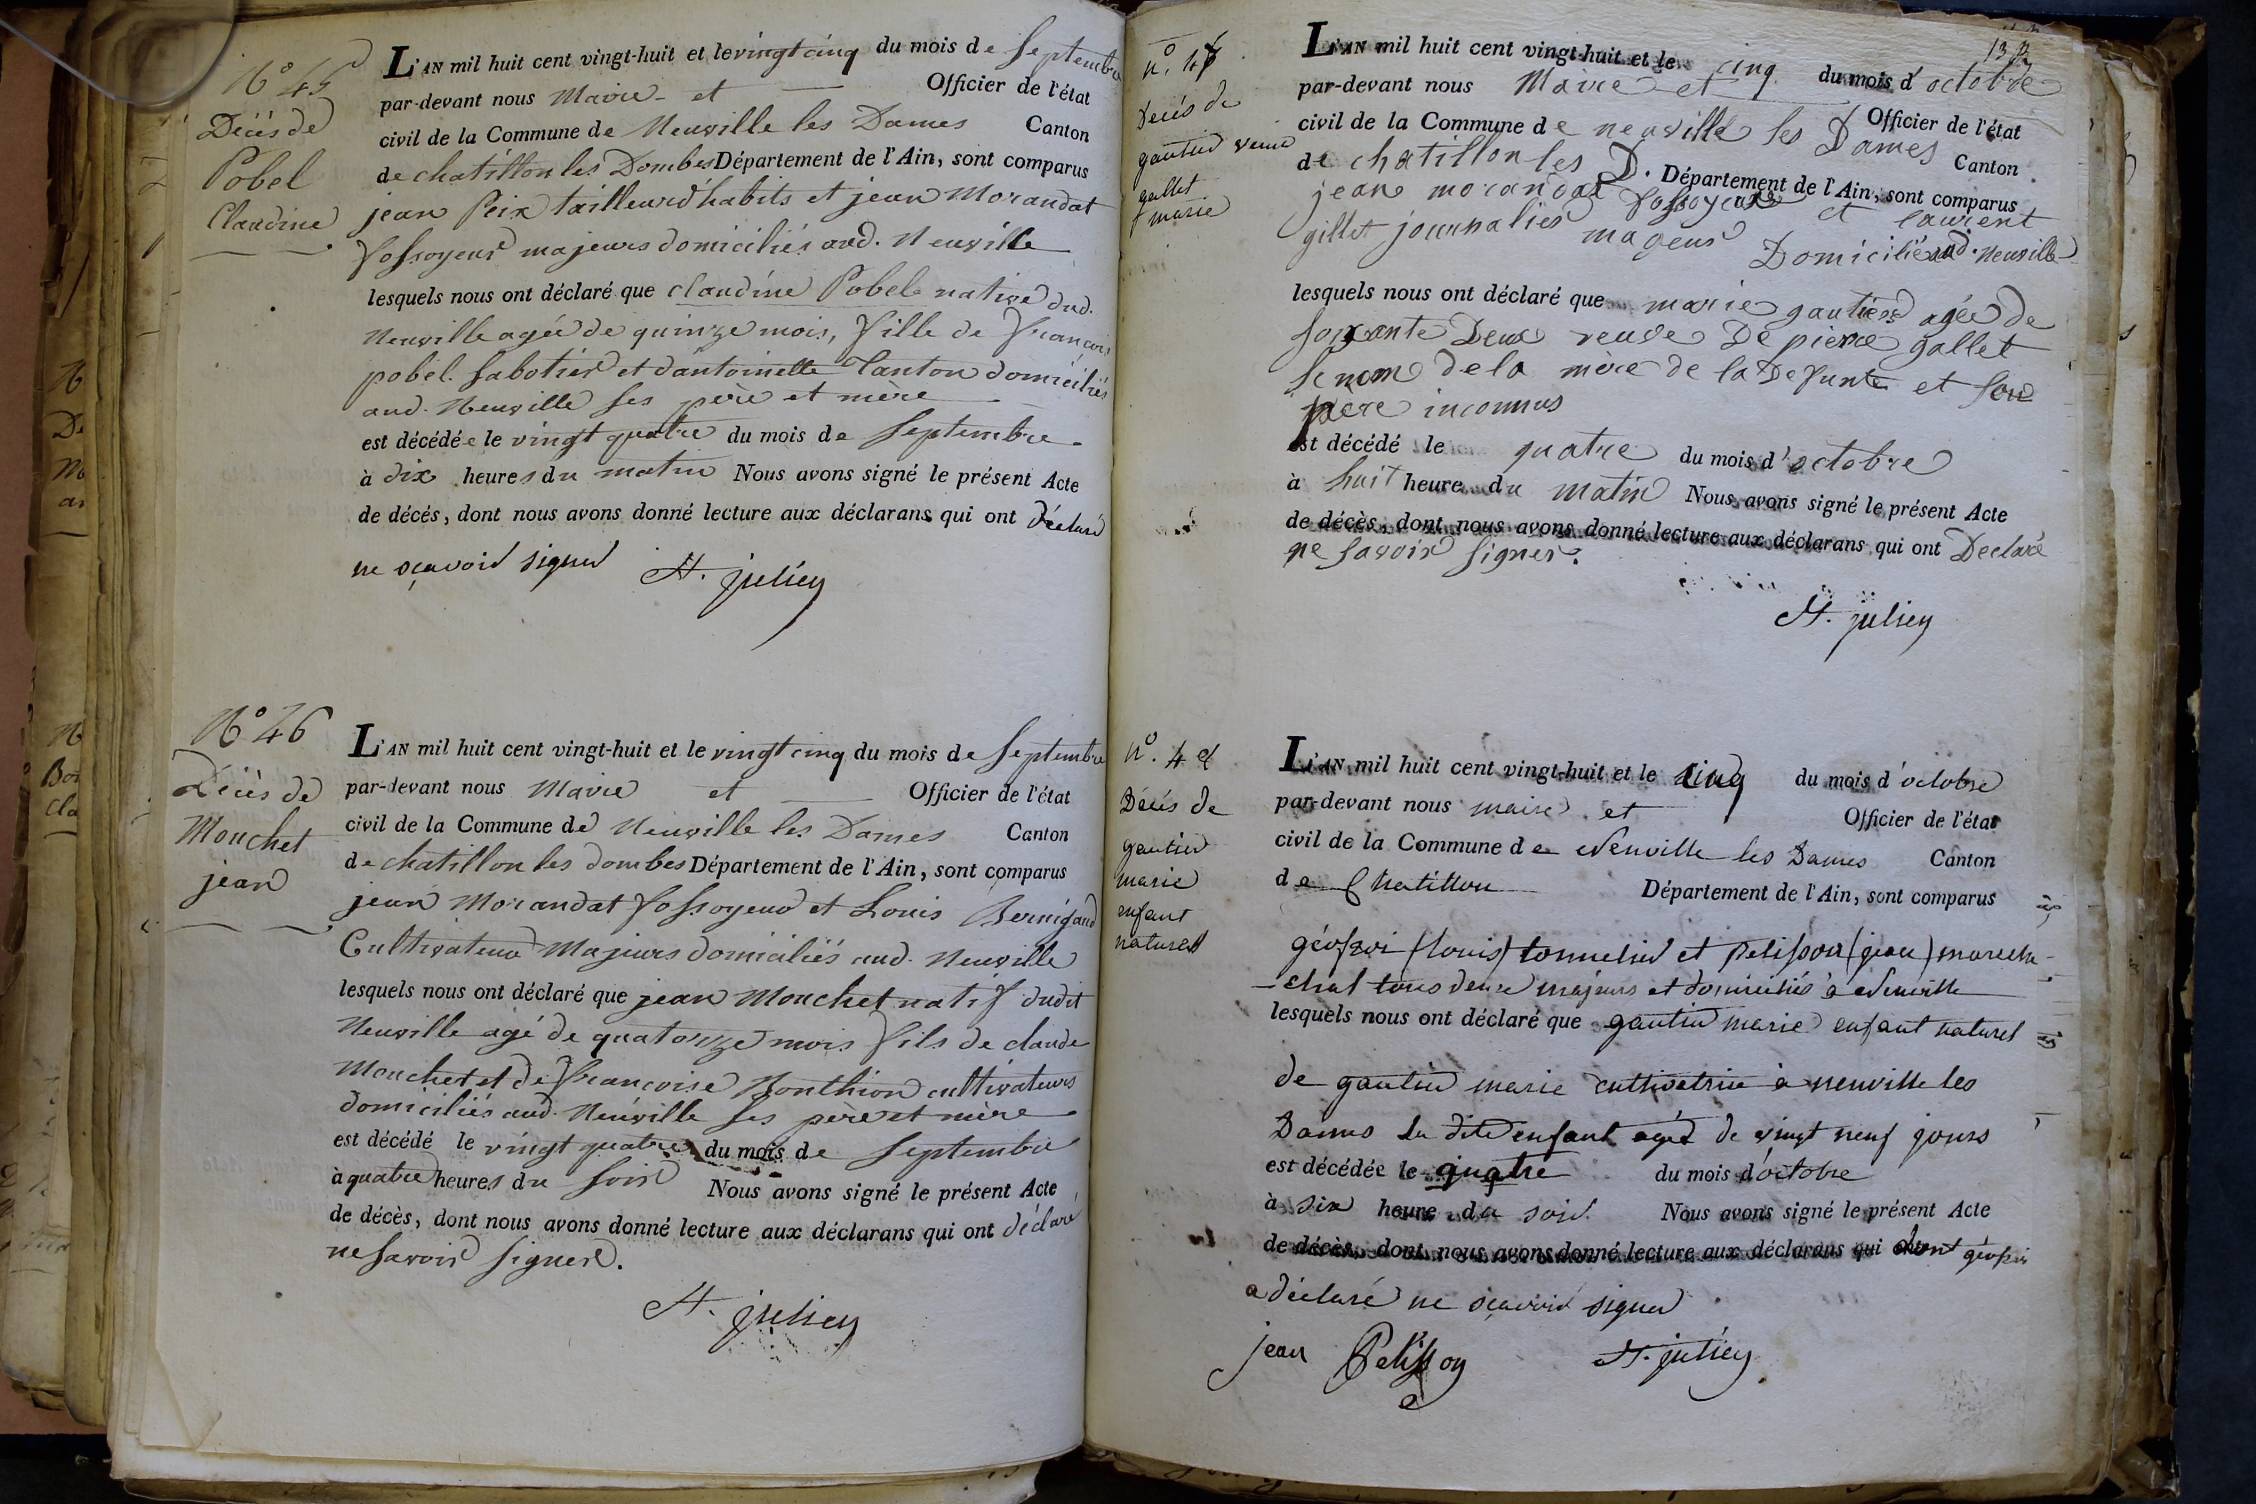 N° 45
Décès de
Pobel
Claudine
L'AN mil huit cent vingt-huit et le vingt cinq du mois de Septembre
par-devant nous Maire et Officier de l'état
civil de la Commune de Neuville les Dames Canton
de chatillon les Dombes Département de l'Ain, sont comparus
jean Peix tailleur d'habits et jean Morandat
fossoyeur majeurs domiciliés aud. Neuville
lesquels nous ont déclaré que claudine Pobel native dud.
Neuville agée de quinze mois, fille de françois
pobel sabotier et d'antoinette Tanton domiciliés
aud. Neuville ses père et mère
est décédée le vingt quatre du mois de Septembre
à dix heures du matin Nous avons signé le présent Acte
de décés, dont nous avons donné lecture aux déclarans qui ont déclaré
ne sçavoir signer
H. julien
N° 46
Décès de
Mouchet
jean
L'AN mil huit cent vingt-huit et le vingt cinq du mois de Septembre
par-devant nous Maire et Officier de l'état
civil de la Commune de Neuville les Dames Canton
de chatillon les dombes Département de l'Ain, sont comparus
jean Morandat fossoyeur et Louis Bernigaud
Cultivateur Majeurs domiciliés aud. Neuville
lesquels nous ont déclaré que jean Mouchet natif dudit
Neuville agé de quatorze mois fils de claude
Mouchet et de françoise Bonthion cultivateurs
domiciliés aud. Neuville ses père et mère
est décédé le vingt quatre du mois de Septembre
à quatre heures du soir Nous avons signé le présent Acte
de décès, dont nous avons donné lecture aux déclarans qui ont déclaré
ne savoir signer.
H. julien
n°. 47
Décés de
gautier veuve
gallet
marie
L'AN mil huit cent vingt-huit et le cinq du mois d'octobre
par-devant nous Maire et Officier de l'état
civil de la Commune de neuville les Dames Canton
de chatillon les D. Département de l'Ain, sont comparus
jean morandat fossoyeur et laurent
gillet journalier mageur Domicilié aud. Neuville
lesquels nous ont déclaré que marie gautier agée de
soixante Deux veuve De pierre gallet
le nom de la mère de la Defunte et son
père inconnus
est décédé le quatre du mois d'octobre
à huit heure du matin Nous avons signé le présent Acte
de décès, dont nous avons donné lecture aux déclarans qui ont Declaré
ne savoir signer.
H. julien
n°. 48
Décés de
gautier
marie
enfant
naturel
L'AN mil huit cent vingt-huit et le cinq du mois d'octobre
par-devant nous maire et Officier de l'état
civil de la Commune de Neuville les Dames Canton
de Chatillon Département de l'Ain, sont comparus
géofroi (louis) tonnelier et Pelisson (jean) mareche-
-chal tous deux majeurs et domiciliés à Neuville
lesquels nous ont déclaré que gautier marie enfant naturel
de gautier marie cultivatrice à neuville les
Dames la dite enfant agée de vingt neuf jours
est décédée le quatre du mois d'octobre
à six heure du soir. Nous avons signé le présent Acte
de décès, dont nous avons donné lecture aux déclarans qui dont géofroi
a déclaré ne sçavoir signer
jean Pelisson H. julien